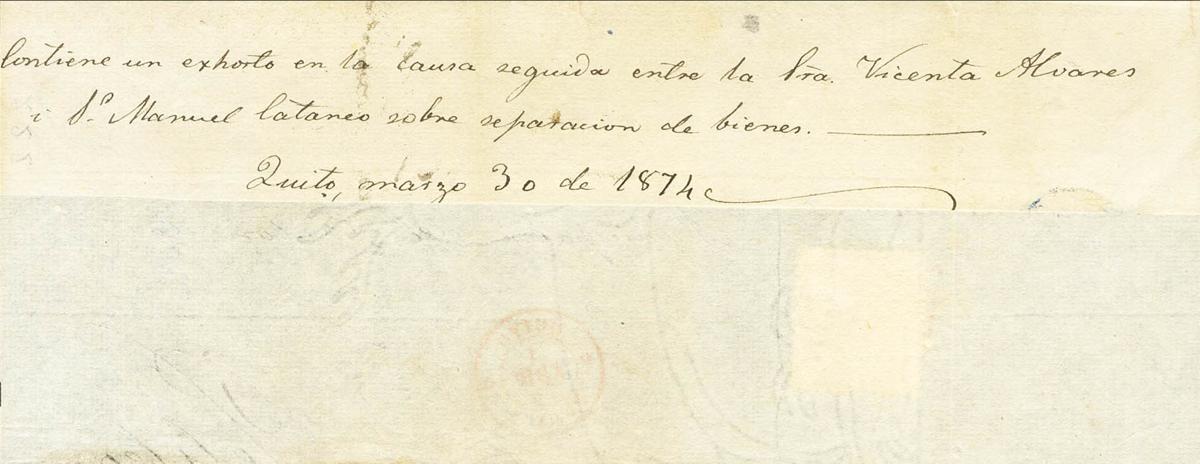 Contiene un exhorto en la causa seguida entre la Sra. Vicenta Alvares
i Dⁿ. Manuel Cataneo sobre separacion de bienes.
Quito, marzo 30 de 1874